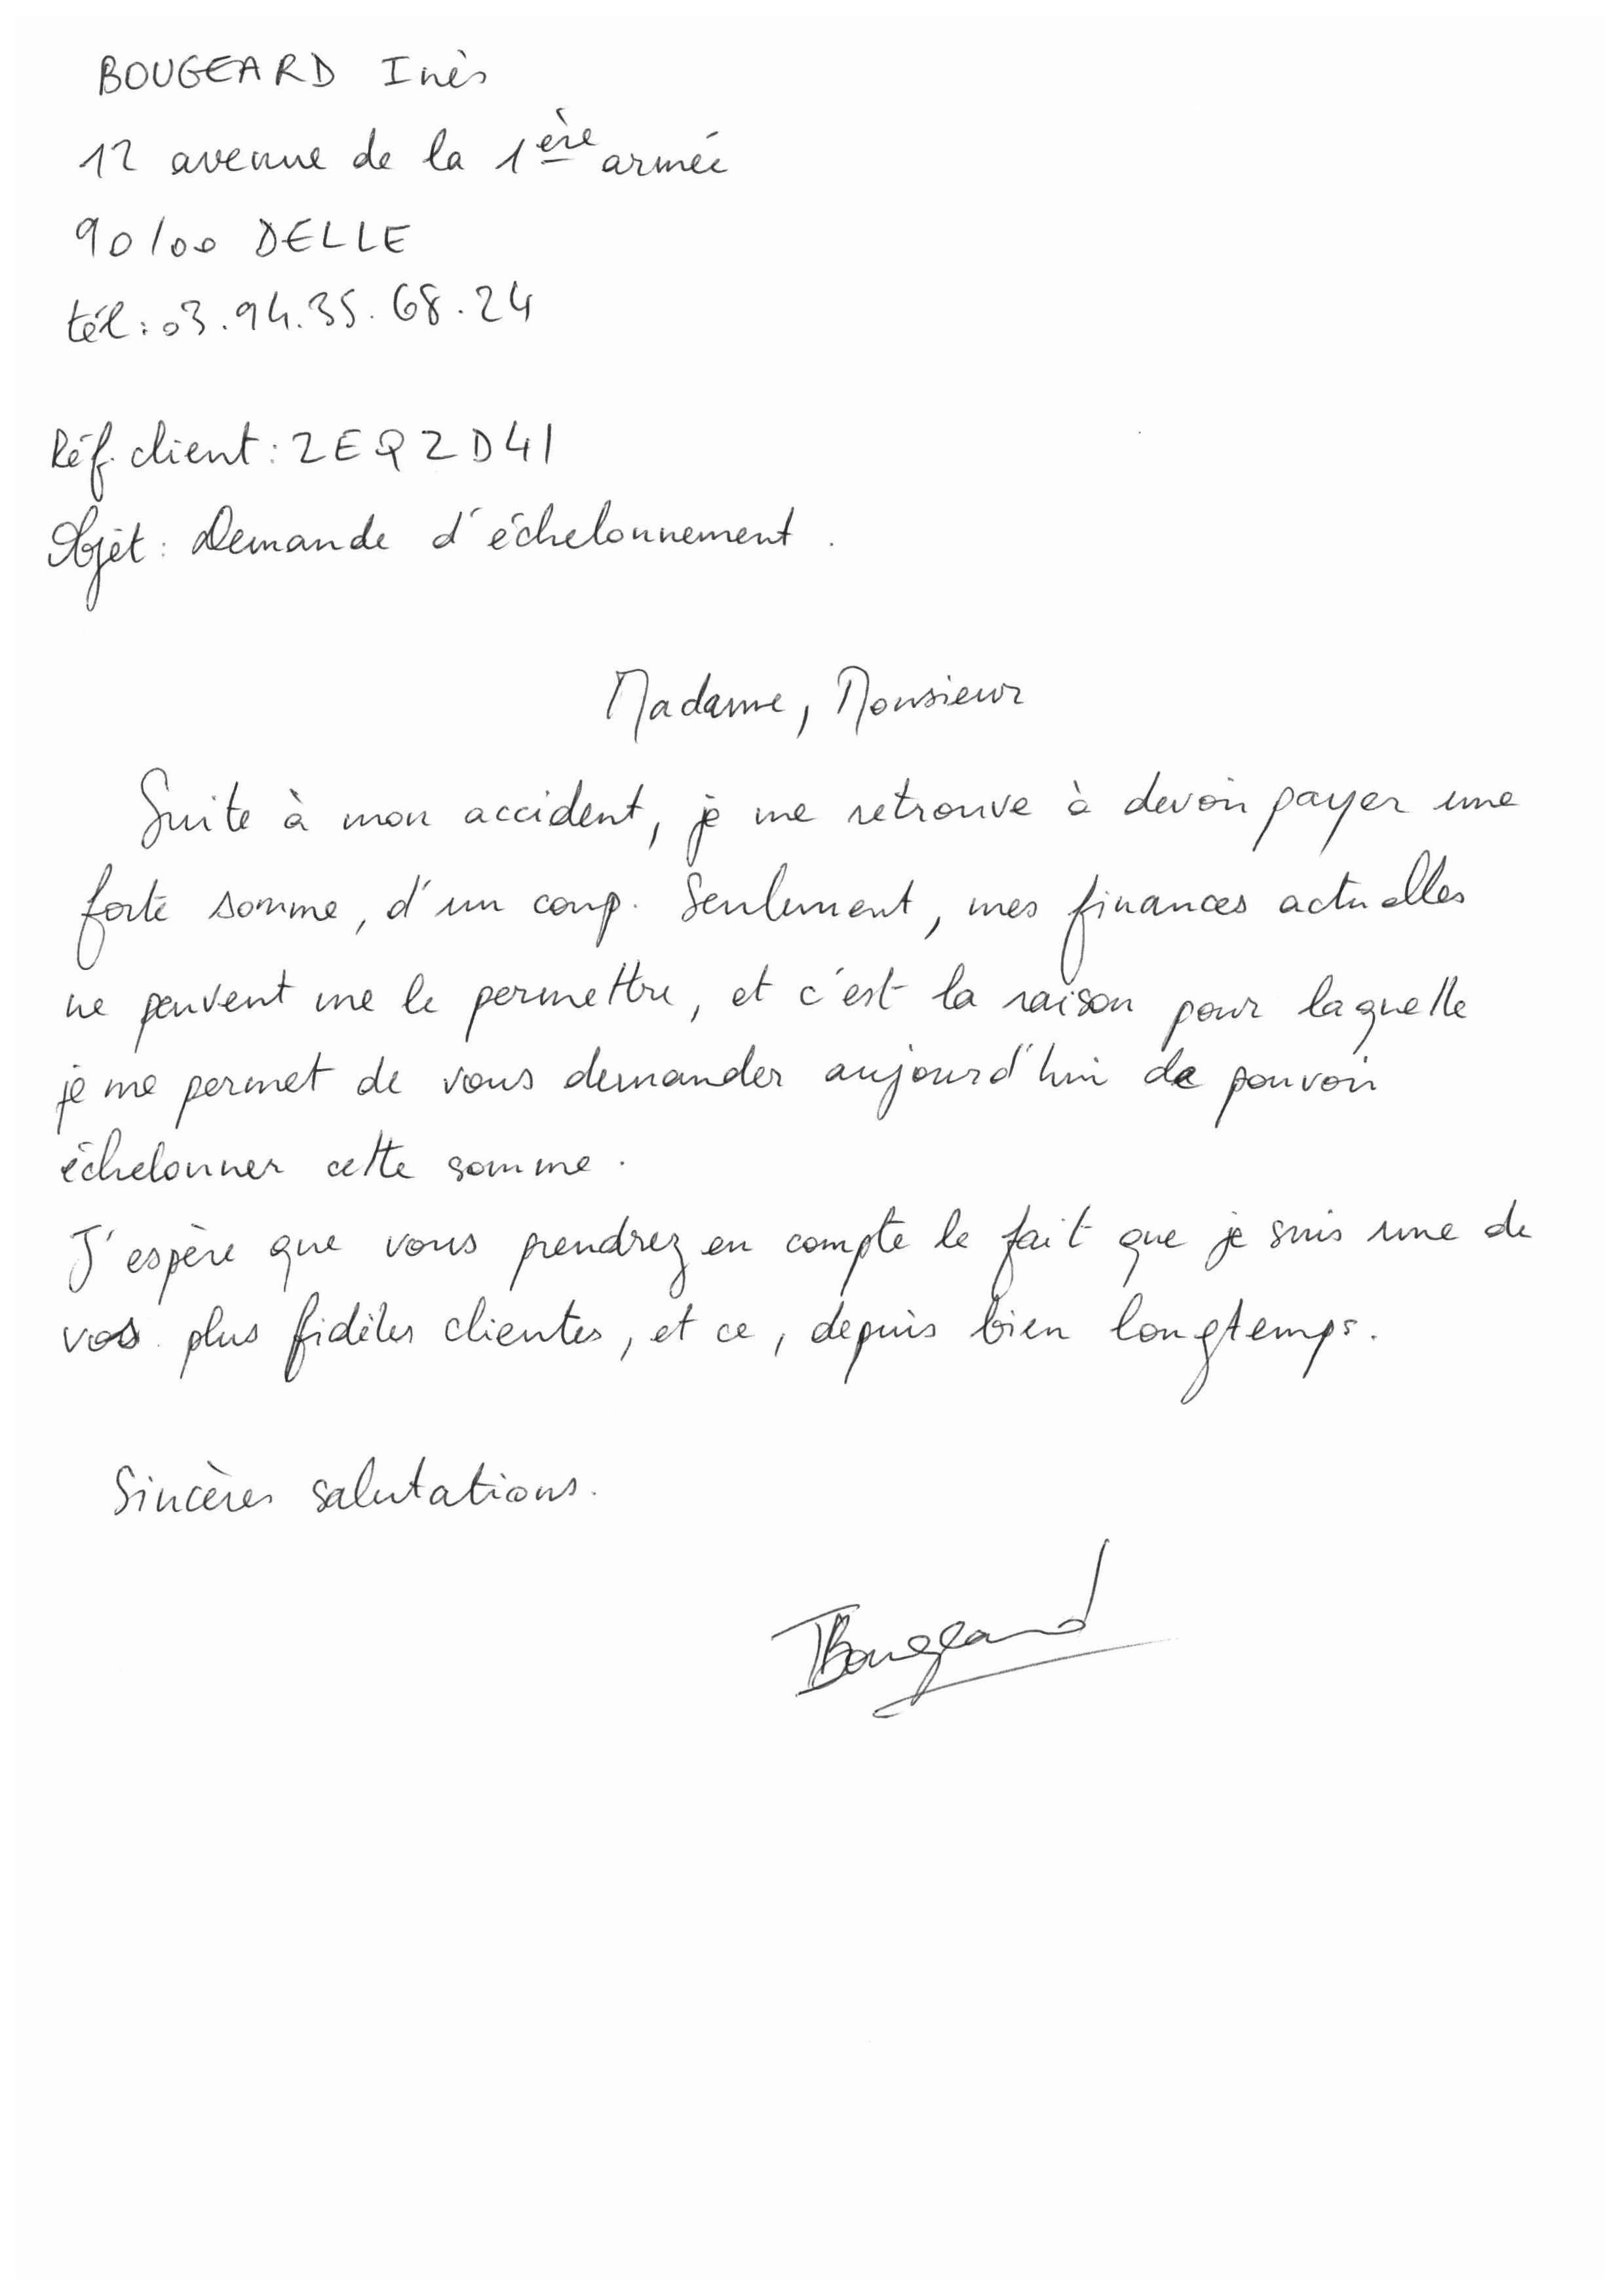 BOUGEARD Inès
12 avenue de la 1ère armée
90100 DELLE
tél : 03.94.35.68.24
Réf. client : ZEQZD41
Objet : Demande d'échelonnement.
Madame, Monsieur
Suite à mon accident, je me retrouve à devoir payer une
forte somme, d'un coup. Seulement, mes finances actuelles
ne peuvent me le permettre, et c'est la raison pour laquelle
je me permet de vous demander aujourd'hui de pouvoir
échelonner cette somme.
J'espère que vous prendrez en compte le fait que je suis une de
vos plus fidèles clientes, et ce, depuis bien longtemps.
Sincères salutations.
IBougeard